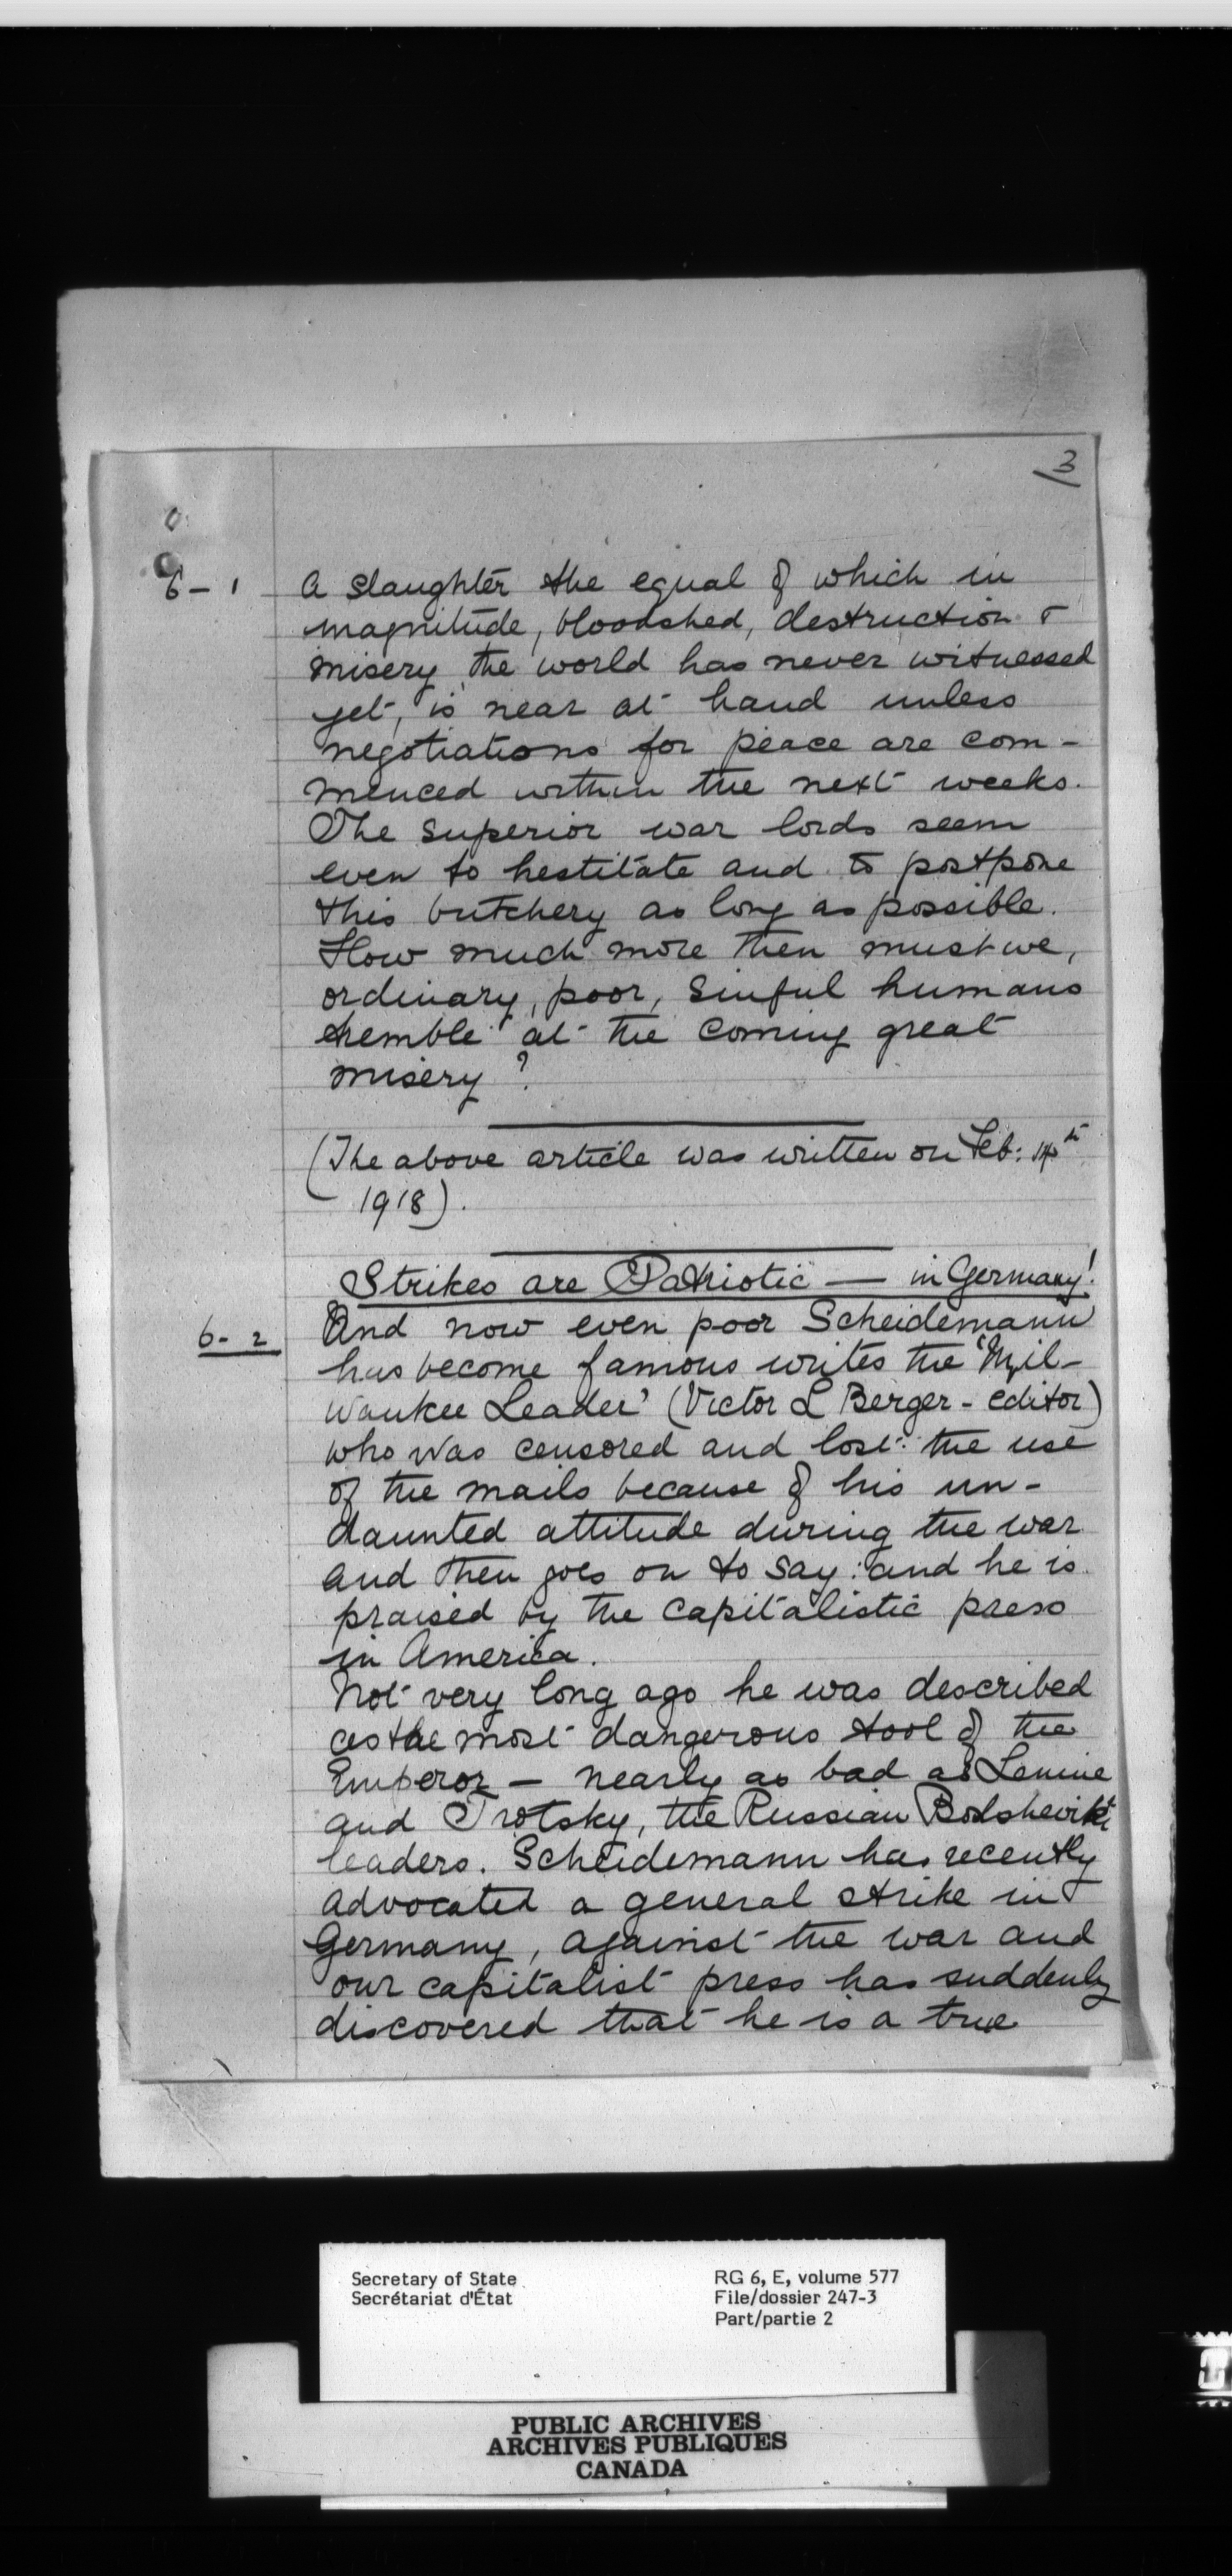 3
6 - 1
A slaughter the equal of which in
magnitude, bloodshed, destruction &
misery, the world has never witnessed
yet, is near at hand unless
negotiations for peace are com-
menced within the next weeks.
The superior war lords seem
even to hestitate and to postpone
this butchery as long as possible.
How much more then must we,
ordinary, poor, sinful humans
tremble at the coming great
misery?
(The above article was written on Feb: 14th
1918).
Strikes are Patriotic — in Germany!
6 - 2
And now even poor Scheidemann
has become famous writes the 'Mil-
waukee Leader' (Victor L Berger - editor)
who was censored and lost the use
of the mails because of his un-
daunted attitude during the war
and then goes on to say: and he is
praised by the capitalistic press
in America.
Not very long ago he was described
as the most dangerous tool of the
Emperor — nearly as bad as Lenine
and Trotsky, the Russian Bolsheviki
leaders. Scheidemann has recently
advocated a general strike in
Germany, against the war and
our capitalist press has suddenly
discovered that he is a true
Secretary of State
Secrétariat d'État
RG 6, E, volume 577
File/dossier 247-3
Part/partie 2
PUBLIC ARCHIVES
ARCHIVES PUBLIQUES
CANADA